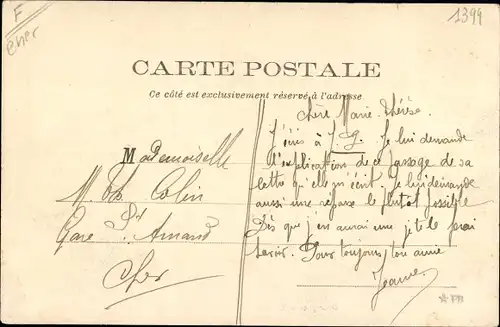 F
Cher
1394
CARTE POSTALE
Ce côté est exclusivement réservé à l'adresse
Mademoiselle
M. Th. Colin
Gare St Amand
Cher
Chère Marie-Thérèse
J'écris à J.G. Je lui demande
l'explication de ce passage de sa
lettre qu'elle m'écrit. Je lui demande
aussi une réponse le plutôt possible
Dès que j'en aurai une je te le ferai
savoir. Pour toujours ton amie
Jeanne
PB